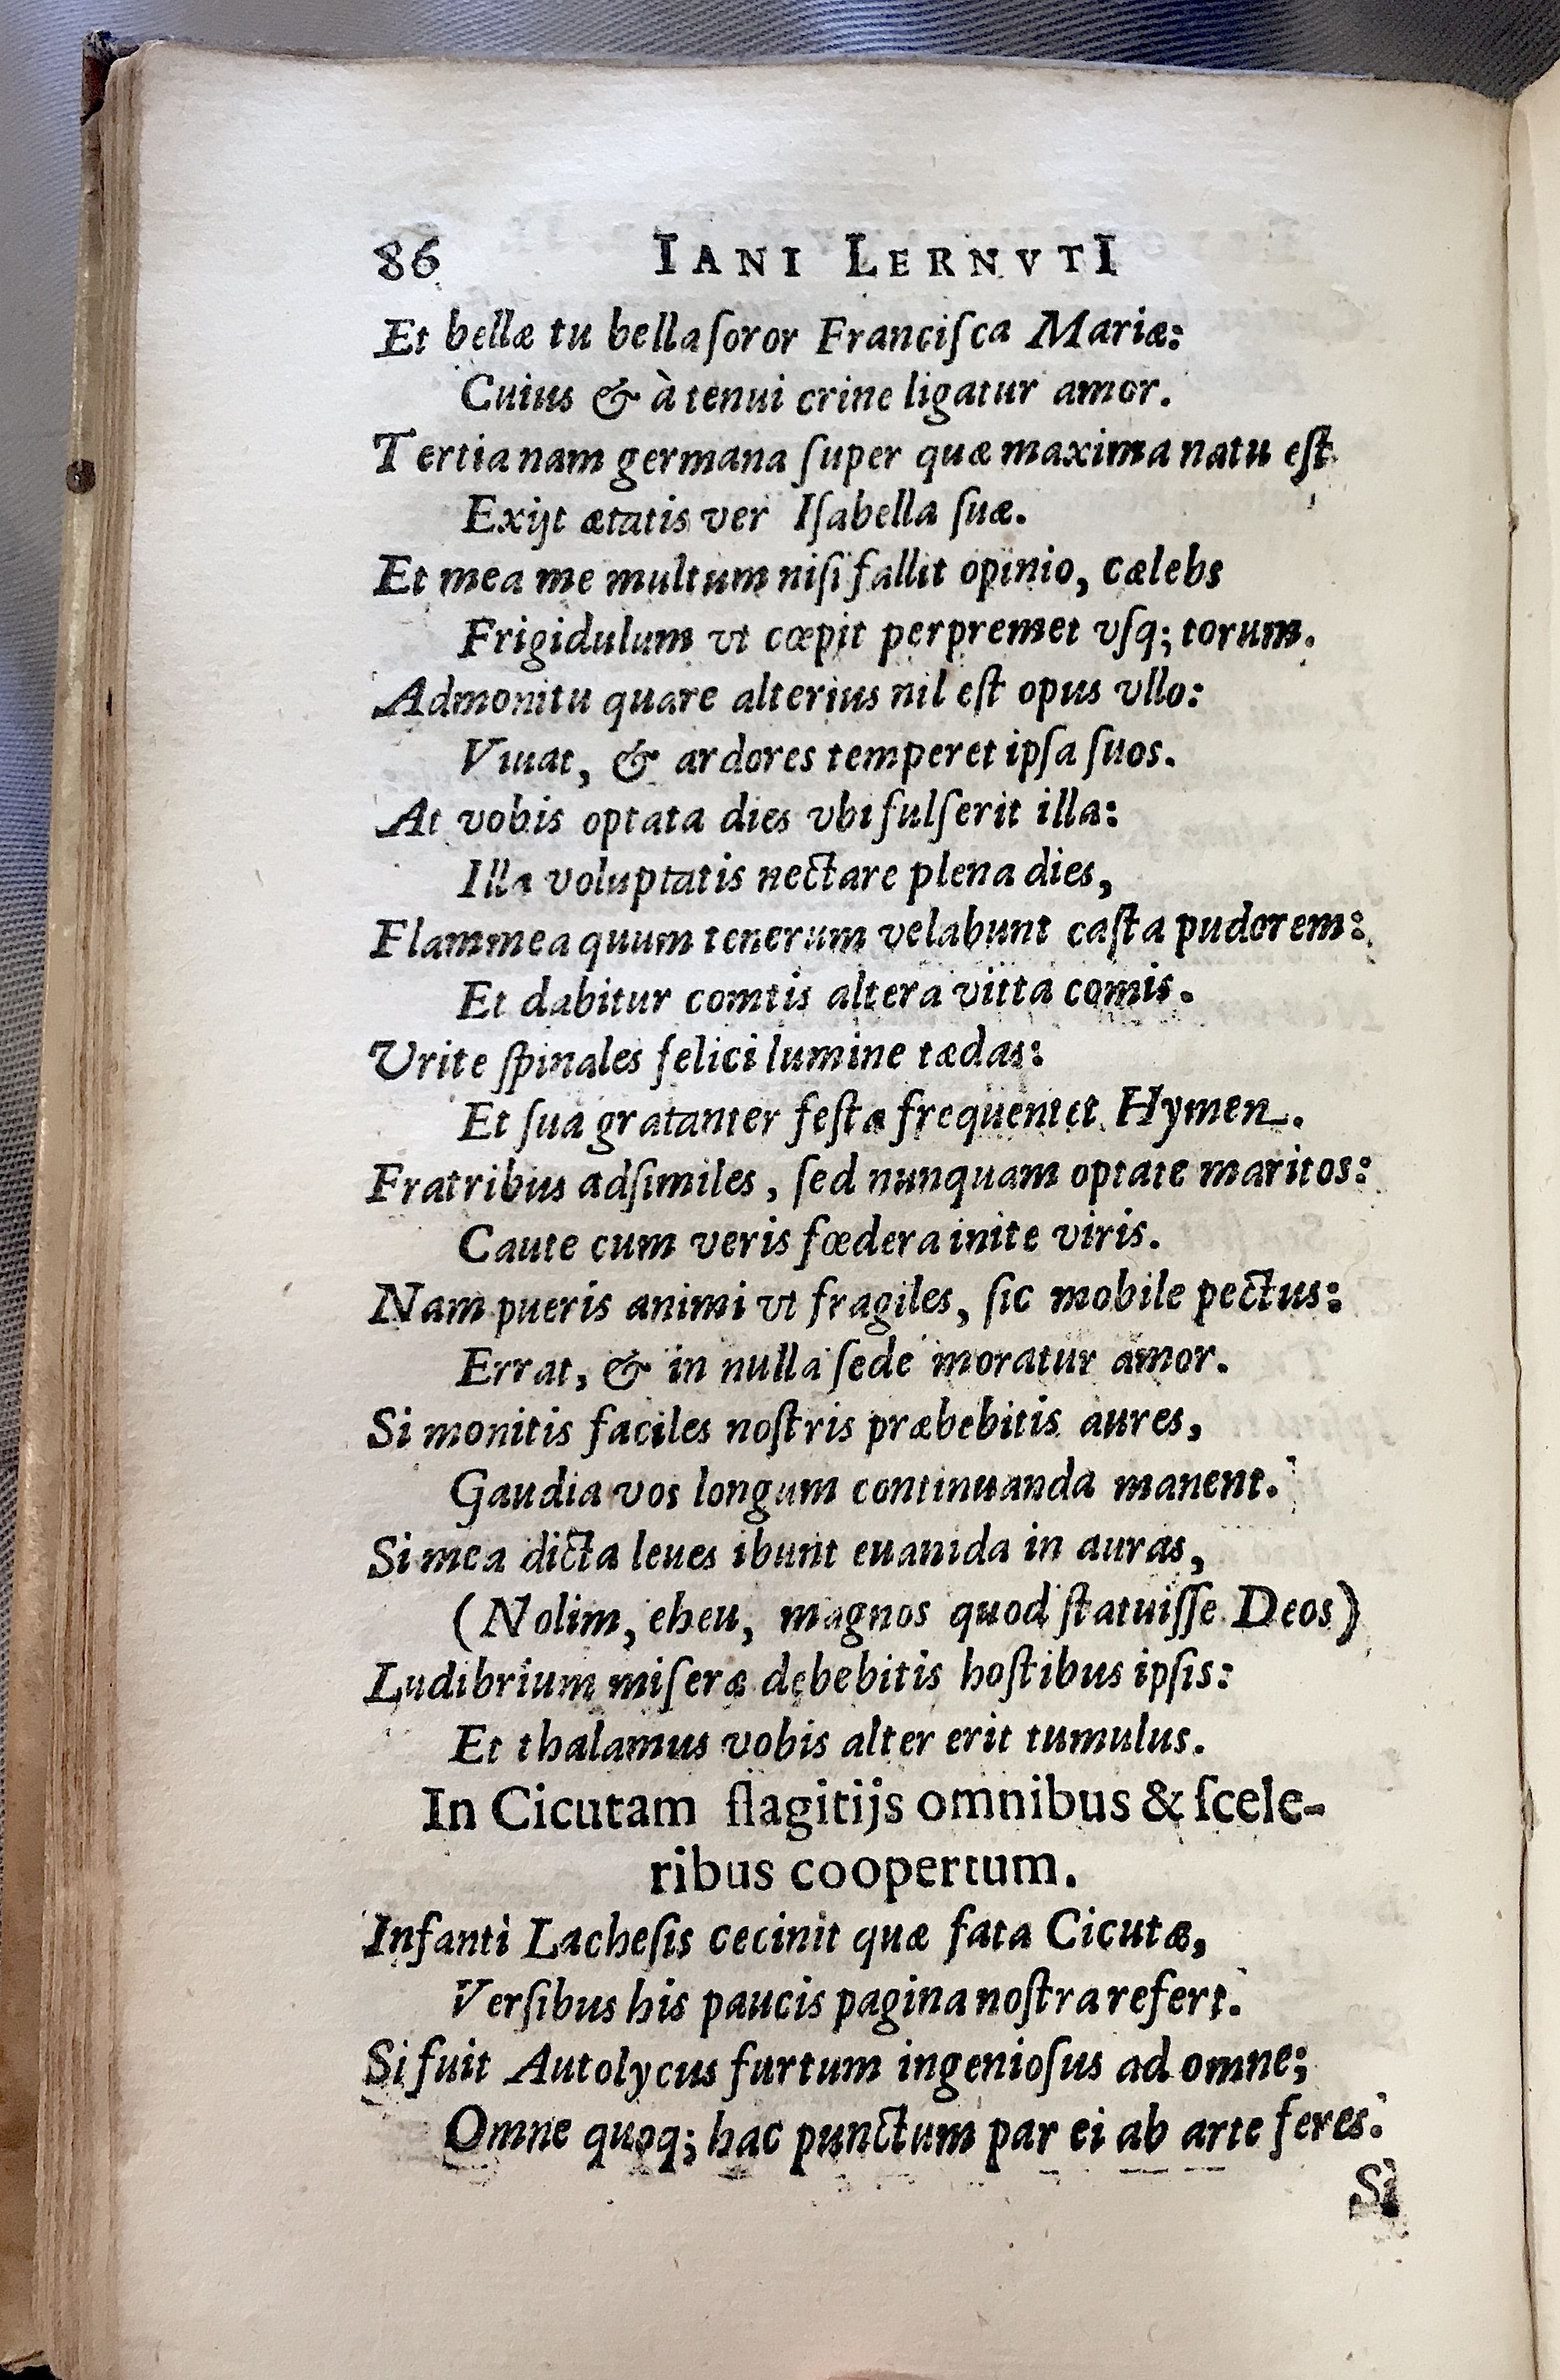 86 IANI LERNVTI
Et bellæ tu bella ſoror Franciſca Mariæ:
Cuius & à tenui crine ligatur amor.
Tertia nam germana ſuper quæ maxima natu eſt
Exijt ætatis ver Iſabella ſuæ.
Et mea me multum niſi fallit opinio, cælebs
Frigidulum vt cœpit perpremet vſq; torum.
Admonitu quare alterius nil eſt opus vllo:
Viuat, & ardores temperet ipſa ſuos.
At vobis optata dies vbi fulſerit illa:
Illa voluptatis nectare plena dies,
Flammea quum tenerum velabunt caſta pudorem:
Et dabitur comtis altera vitta comis.
Vrite ſpinales felici lumine tædas:
Et ſua gratanter feſta frequentet Hymen.
Fratribus adſimiles, ſed nunquam optate maritos:
Caute cum veris fœdera inite viris.
Nam pueris animi vt fragiles, ſic mobile pectus:
Errat, & in nulla ſede moratur amor.
Si monitis faciles noſtris præbebitis aures,
Gaudia vos longum continuanda manent.
Si mea dicta leues ibunt euanida in auras,
(Nolim, eheu, magnos quod ſtatuiſſe Deos)
Ludibrium miſeræ debebitis hoſtibus ipſis:
Et thalamus vobis alter erit tumulus.
In Cicutam flagitijs omnibus & ſcele-
ribus coopertum.
Infanti Lacheſis cecinit quæ fata Cicutæ,
Verſibus his paucis pagina noſtra refert.
Si fuit Autolycus furtum ingenioſus ad omne;
Omne quoq; hac punctum par ei ab arte feres.
Si